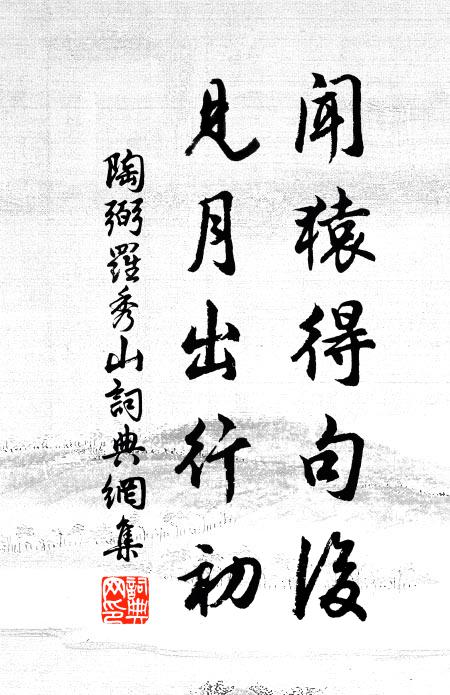 聞猿得句後
見月出行初
陶弼羅秀山詞典網集
詞典網印